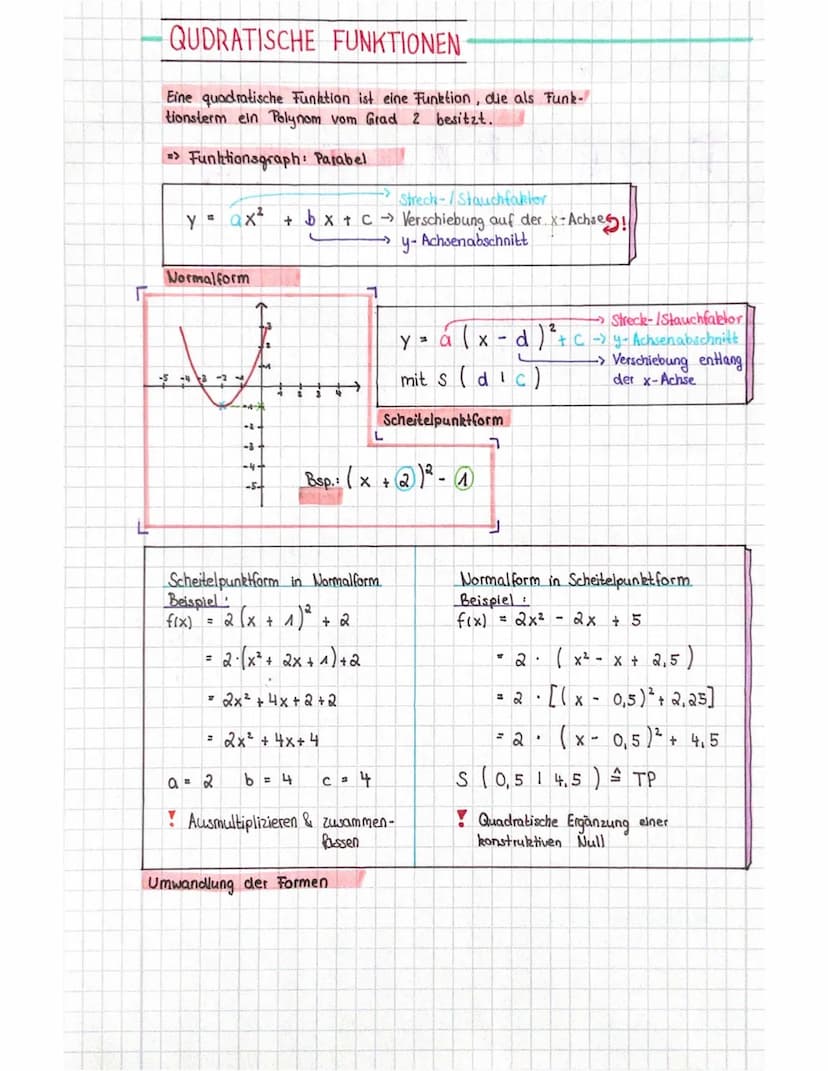 QUDRATISCHE FUNKTIONEN
Eine quadratische Funktion ist eine Funktion, die als Funk-
tionsterm ein Polynom vom Grad 2 besitzt.
=> Funktionsgraph: Parabel
Streck-/Stauchfaktor
y = ax² + bx + c → Verschiebung auf der x-Achse !
y-Achsenabschnitt
Normalform
Streck-/Stauchfaktor
y = a (x - d)² + c → y-Achsenabschnitt
Verschiebung entlang
mit S (d | c) der x-Achse
Scheitelpunktform
3
2
1
-5 -4 -3 -2 -1 1 2 3 4
-1
-2
-3
-4
-5
Bsp.: (x + 2)² - 1
Scheitelpunktform in Normalform
Beispiel:
f(x) = 2(x + 1)² + 2
= 2·(x² + 2x + 1)+2
= 2x² + 4x + 2 + 2
= 2x² + 4x + 4
a = 2 b = 4 c = 4
! Ausmultiplizieren & zusammen-
fassen
Normalform in Scheitelpunktform
Beispiel:
f(x) = 2x² - 2x + 5
= 2 · (x² - x + 2,5)
= 2 · [(x - 0,5)² + 2,25]
= 2 · (x - 0,5)² + 4,5
S (0,5 | 4,5) ≙ TP
! Quadratische Ergänzung einer
konstruktiven Null
Umwandlung der Formen